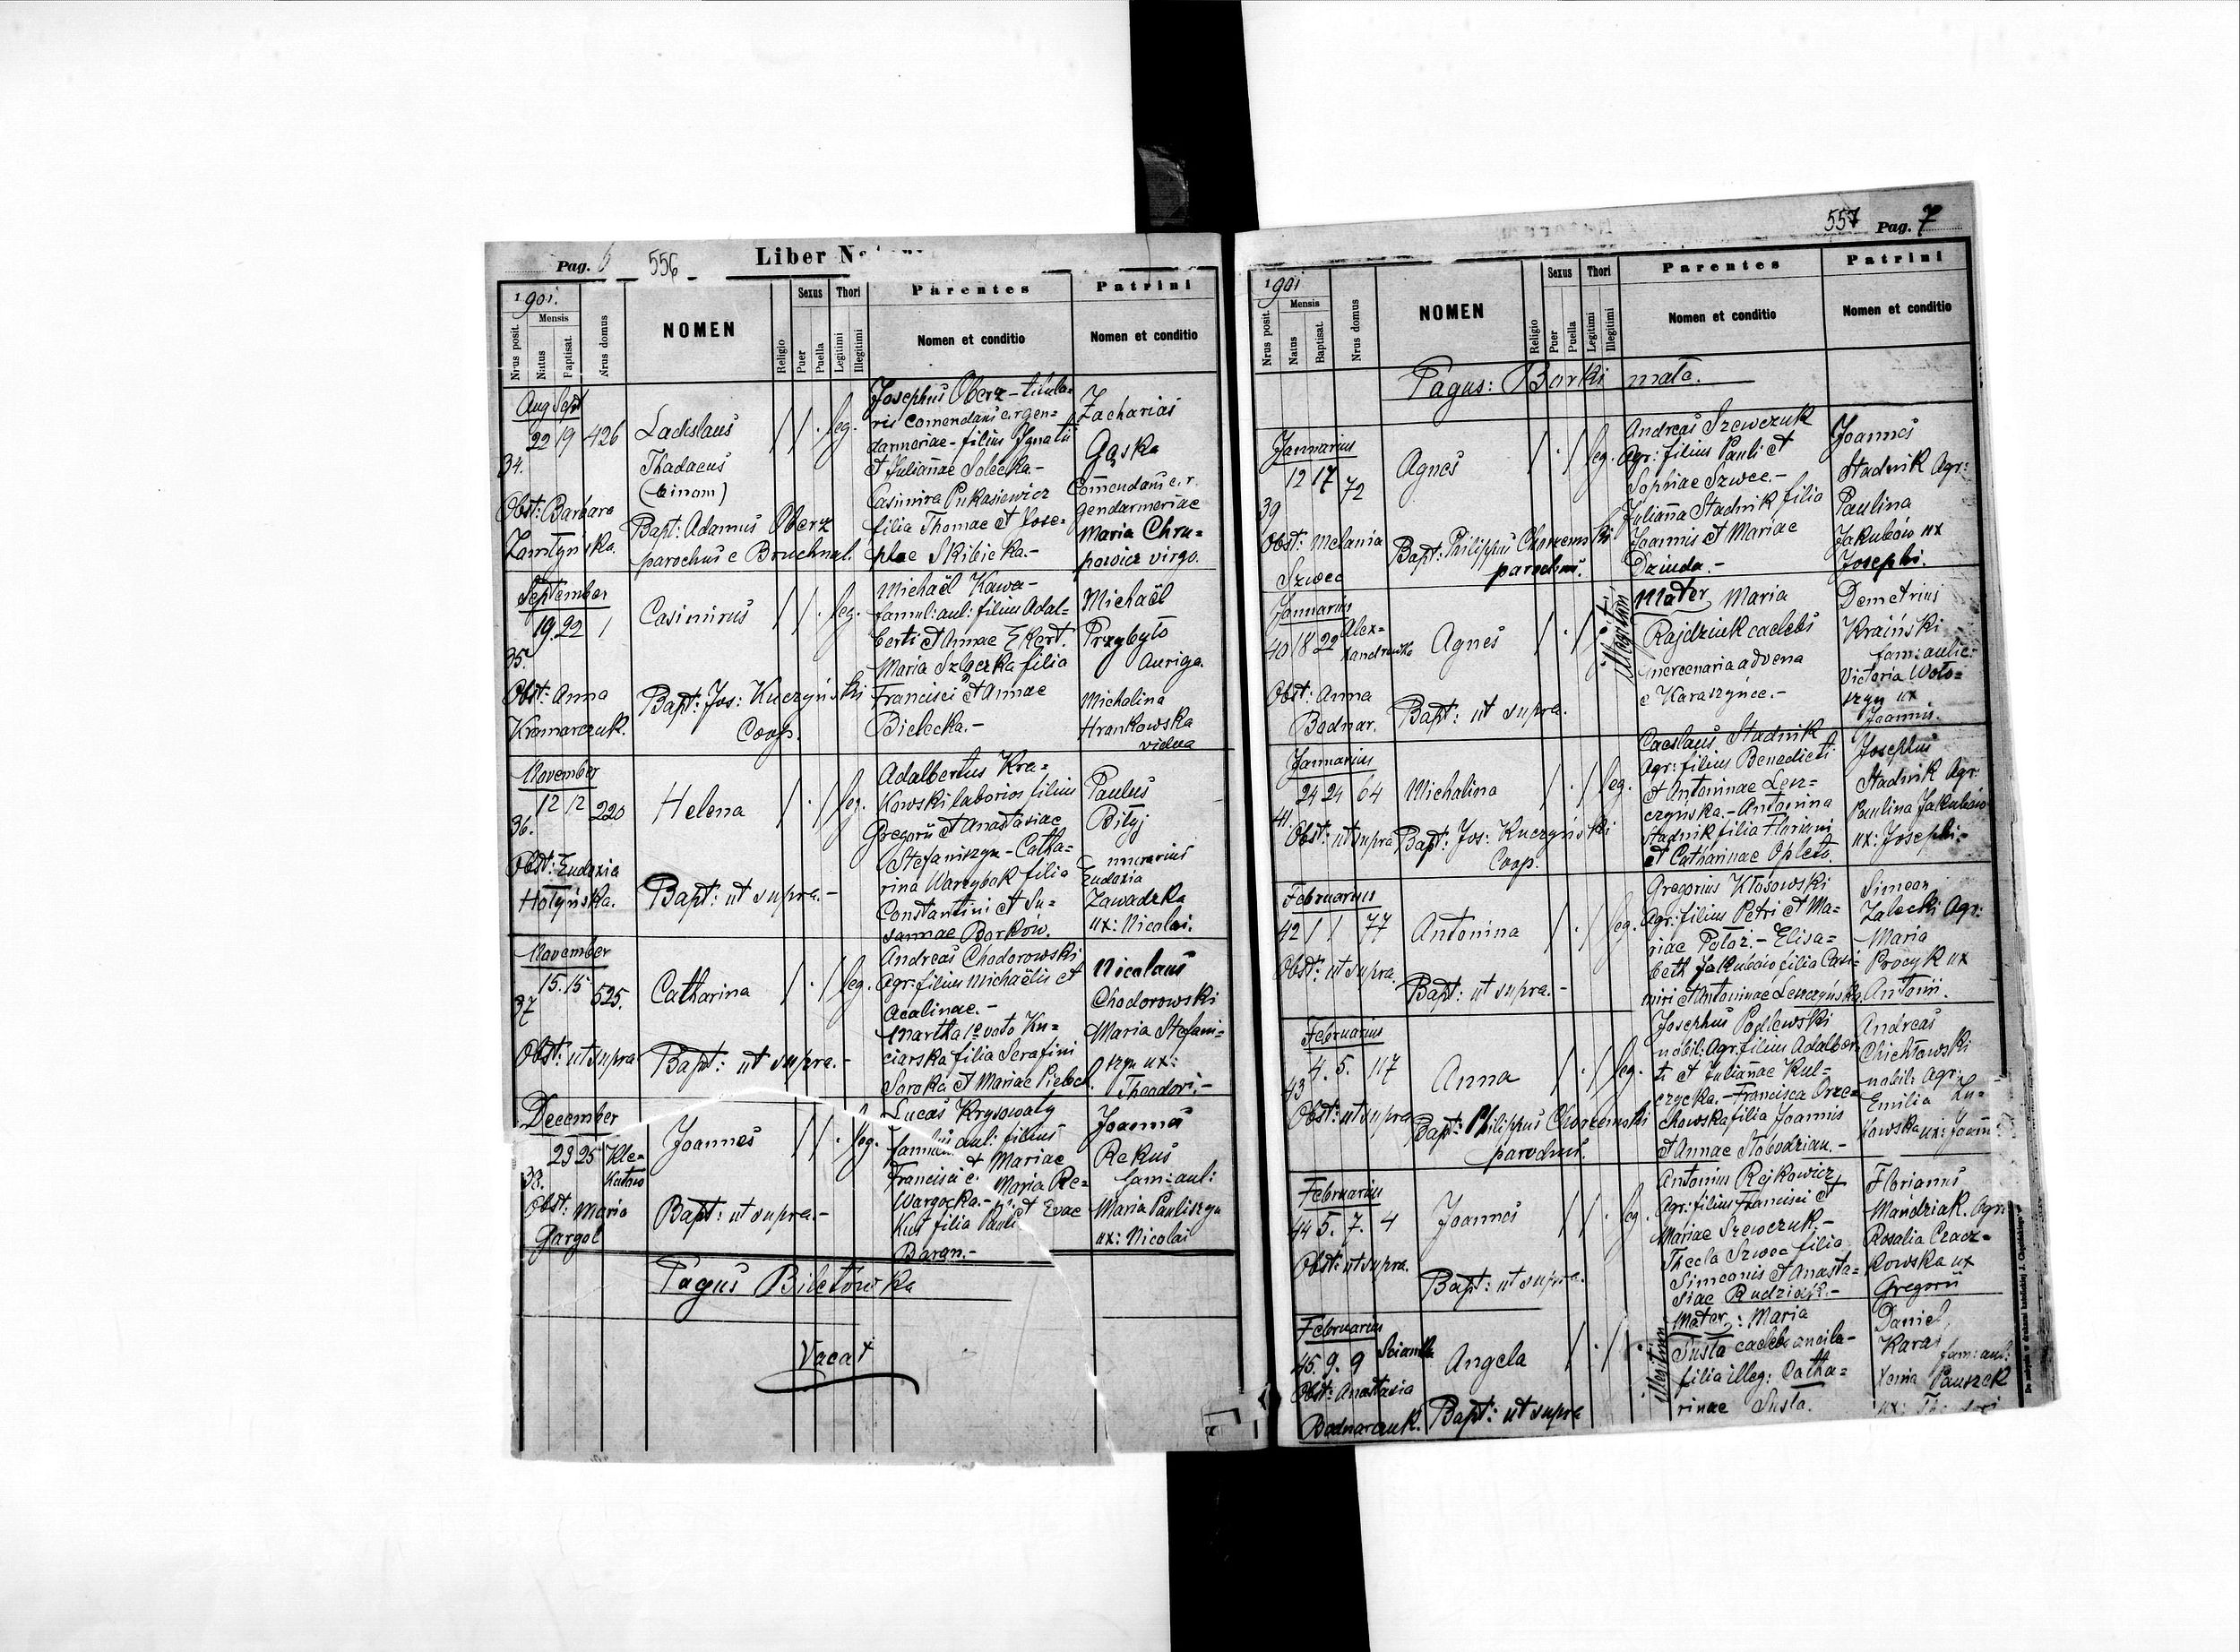 Pag. 6 556 Liber N
1901.
Nrus posit.
Mensis
Natus
Baptisat.
Nrus domus
NOMEN
Religio
Sexus
Puer
Puella
Thori
Legitimi
Illegitimi
Parentes
Nomen et conditio
Patrini
Nomen et conditio
Aug Sept
22 19 426
34.
Obst: Barbara
Zamtyńska.
Ladislaus
Thadaeus
(binom)
Bapt: Adamus Oberz
parochus e Bruchnal.
leg.
Josephus Oberz - titula=
ris comendans c.r gen=
darmeriae - filius Ignatii
et Julianae Solecka.-
Casimira Pukasiewicz
filia Thomae et Jose=
phae Skibicka.-
Zacharias
Gąska
Comendans c.r.
gendarmeriae
Maria Chru=
powicz virgo.
September
19. 22 1
35.
Obst: Anna
Kramarczuk.
Casimirus
Bapt: Jos: Kuczyński
Coop.
leg.
Michaël Kawa-
famul: aul: filius Adal=
berti et Annae Ekert.
Maria Szlaczka filia
Francisci et Annae
Bielecka.-
Michaël
Przybyło
Auriga.
Michalina
Hrankowska
vidua
November
12 12 220
36.
Obst: Eudoxia
Hołyńska.
Helena
Bapt: ut supra.-
leg.
Adalbertus Kra=
kowski laborios filius
Gregorii et Anastasiae
Stefaniszyn - Catha=
rina Warzybok filia
Constantini et Su=
sannae Borków.
Paulus
Biłyj
murarius
Eudoxia
Zawadzka
ux: Nicolai.
November
15. 15 525.
37
Obst: ut supra
Catharina
Bapt: ut supra.-
leg.
Andreas Chodorowski
Agr: filius Michaëlis et
Acalinae.-
Martha 1º voto Ku=
ciarska filia Serafini
Soroka et Mariae
Nicolaus
Chodorowski
Maria Stefani=
szyn ux:
Theodori.-
December
23 25 Kle=
kotów
38.
Obst: Maria
Gargol
Joannes
Bapt: ut supra.-
leg.
Lucas Krysowaty
famulus aul: filius
Francisci et Mariae
Wargocka.- Maria Re=
kus filia Pauli et Evae
Baran.-
Joannes
Rekus
fam: aul:
Maria Pauliszyn
ux: Nicolai
Pagus Biletówka
Vacat
557 Pag. 7
1901
Nrus posit.
Mensis
Natus
Baptisat.
Nrus domus
NOMEN
Religio
Sexus
Puer
Puella
Thori
Legitimi
Illegitimi
Parentes
Nomen et conditio
Patrini
Nomen et conditio
Pagus: Borki małe.
Januarius
12 17 72
39
Obst: Melania
Szwec
Agnes
Bapt: Philippus Chorzemski
parochus.
leg.
Andreas Szewczuk
Agr: filius Pauli et
Sophiae Szwec.-
Julianna Stadnik filia
Joannis et Mariae
Dziuda.-
Joannes
Stadnik Agr:
Paulina
Jakubów ux
Josephi.
Januarius
40 18 22 Alex=
androwka
Obst: Anna
Bodnar.
Agnes
Bapt: ut supra.
Illegitim
Mater Maria
Rajdziuk caelebs
mercenaria advena
e Karaszynce.-
Demetrius
Kraiński
fam: aulic:
Victoria Woło=
szyn ux
Joannis.
Januarius
24 24 64
41.
Obst: ut supra
Michalina
Bapt: Jos: Kuczyński
Coop.
leg.
Caeslaus Stadnik
Agr: filius Benedicti
et Antoninae Lesz=
czyńska.- Antonina
Stadnik filia Floriani
et Catharinae Opleta.
Josephus
Stadnik Agr:
Paulina Jakubów
ux: Josephi.-
Februarius
42 1 1 77
Obst: ut supra.
Antonina
Bapt: ut supra.-
leg.
Gregorius Kłosowski
Agr: filius Petri et Ma=
riae Potoż.- Elisa=
beth Jakubów filia Casi=
miri et Antoninae Leszczyńska.
Simeon
Zalecki Agr:
Maria
Procyk ux
Antonii.
Februarius
4. 5. 117
43
Obst: ut supra
Anna
Bapt: Philippus Chorzemski
parochus.
leg.
Josephus Podlewski
nobil: Agr: filius Adalber=
ti et Julianae Kul=
czycka.- Francisca Orze=
chowska filia Joannis
et Annae Słobodzian.-
Andreas
Chichłowski
nobil: Agr:
Emilia
Februarius
44 5. 7. 4
Obst: ut supra.
Joannes
Bapt: ut supra.
leg.
Antonius Rejkowicz
Agr: filius Francisci et
Mariae Szewczuk.-
Thecla Szwec filia
Simeonis et Anasta=
siae Rudziak.-
Florianus
Mandziak. Agr:
Rosalia Czacz=
kowska ux
Gregorii
Februarius
45. 9. 9
Obst: Anastasia
Bodnarczuk.
Angela
Bapt: ut supra
Illegitim
Mater: Maria
Susta caelebs ancila-
filia illeg: Catha=
rinae Susta.
Daniel
Karaś fam: aul:
Xenia Pauszek